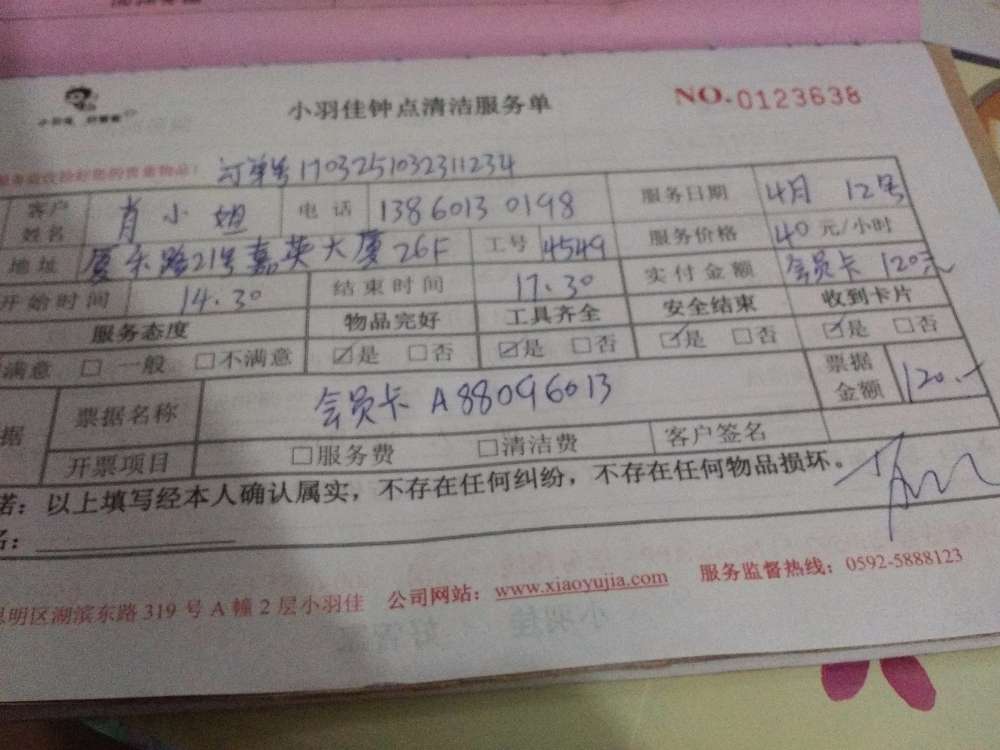 小羽佳钟点清洁服务单 NO.0123638
订单号1703251032311234
客户姓名 肖小姐 电话 13860130198 服务日期 4月12号
地址 厦禾路21号嘉英大厦26F 工号 4549 服务价格 40元/小时
开始时间 14.30 结束时间 17.30 实付金额 会员卡 120元
服务态度 物品完好 工具齐全 安全结束 收到卡片
满意 □一般 □不满意 ☑是 □否 ☑是 □否 ☑是 □否 ☑是 □否
据 票据名称 会员卡 A88096013 票据金额 120.-
开票项目 □服务费 □清洁费 客户签名
诺：以上填写经本人确认属实，不存在任何纠纷，不存在任何物品损坏。
思明区湖滨东路319号A幢2层小羽佳 公司网站：www.xiaoyujia.com 服务监督热线：0592-5888123